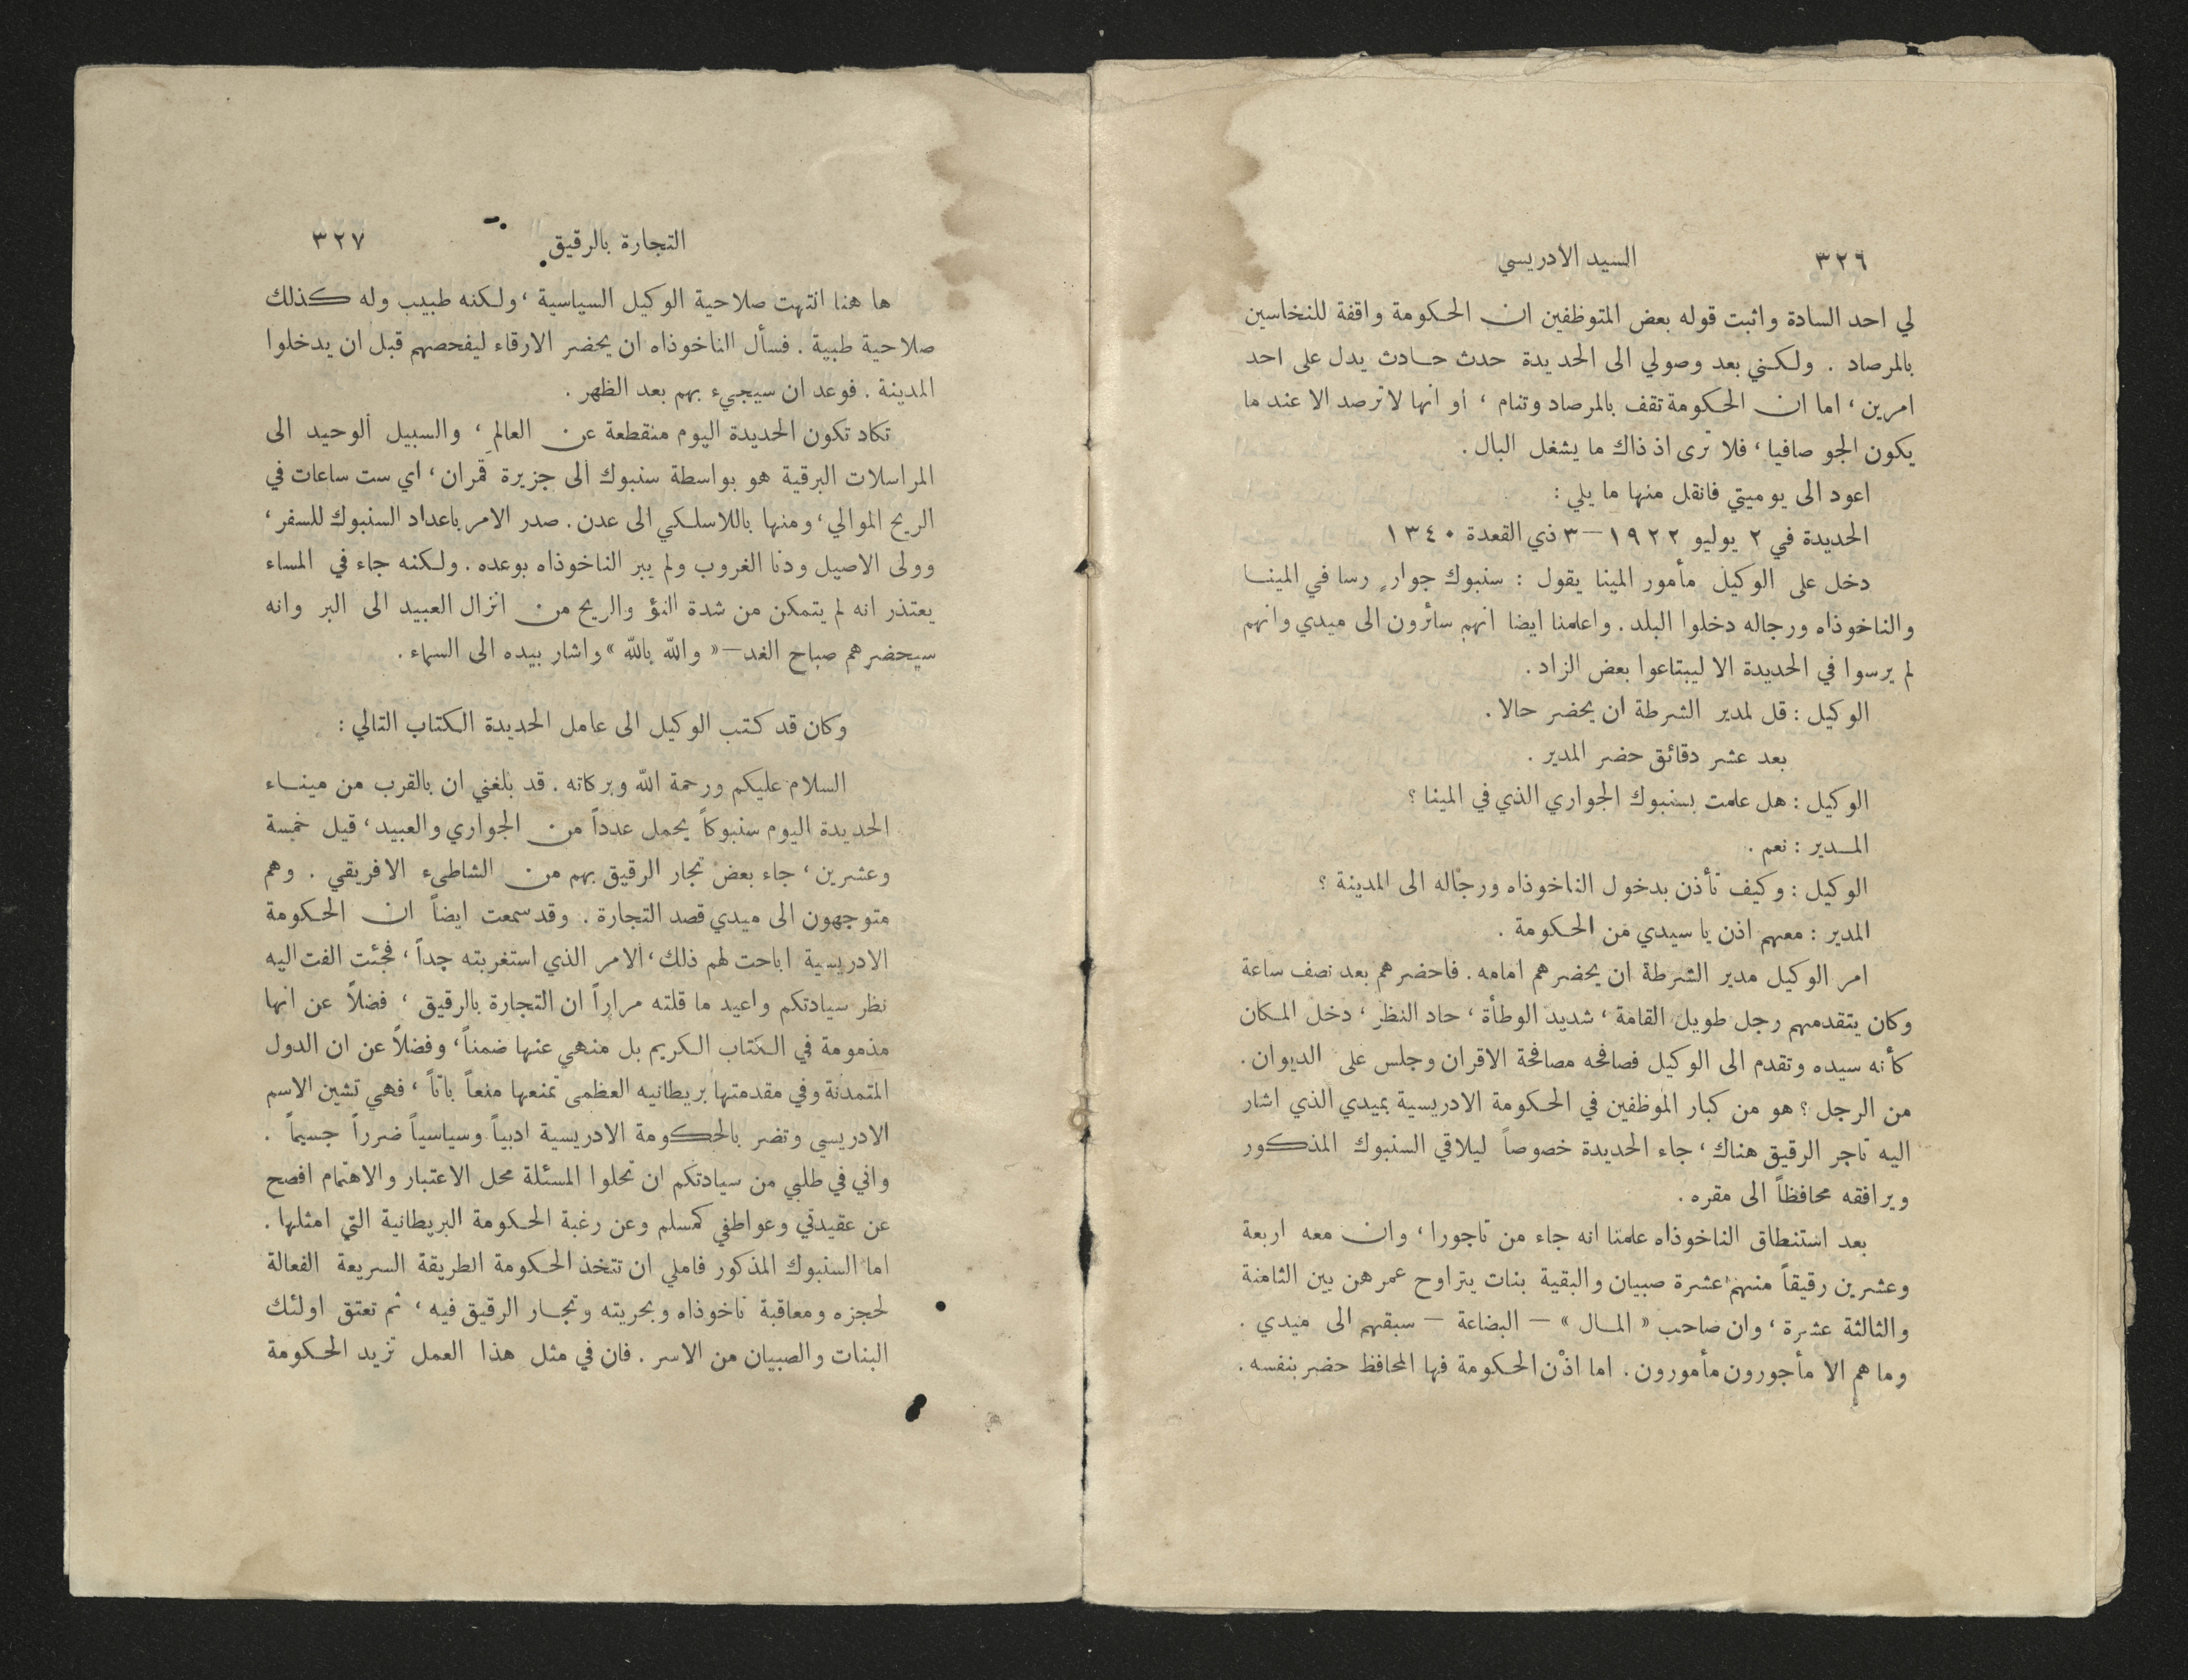 ٣٢٦ السيد الادريسي
لي احد السادة واثبت قوله بعض المتوظفين ان الحكومة واقفة للنخاسين
بالمرصاد . ولكني بعد وصولي الى الحديدة حدث حادث يدل على احد
امرين ، اما ان الحكومة تقف بالمرصاد وتنام ، او انها لا ترصد الا عند ما
يكون الجو صافيا ، فلا ترى اذ ذاك ما يشغل البال .
اعود الى يوميتي فانقل منها ما يلي :
الحديدة في ٢ يوليو ١٩٢٢ — ٣ ذي القعدة ١٣٤٠
دخل على الوكيل مأمور المينا يقول : سنبوك جوارٍ رسا في المينا
والناخوذاه ورجاله دخلوا البلد . واعلمنا ايضا انهم سائرون الى ميدي وانهم
لم يرسوا في الحديدة الا ليبتاعوا بعض الزاد .
الوكيل : قل لمدير الشرطة ان يحضر حالا .
بعد عشر دقائق حضر المدير .
الوكيل : هل علمت بسنبوك الجواري الذي في المينا ؟
المدير : نعم .
الوكيل : وكيف تأذن بدخول الناخوذاه ورجاله الى المدينة ؟
المدير : معهم اذن يا سيدي من الحكومة .
امر الوكيل مدير الشرطة ان يحضرهم امامه . فاحضرهم بعد نصف ساعة
وكان يتقدمهم رجل طويل القامة ، شديد الوطأة ، حاد النظر ، دخل المكان
كأنه سيده وتقدم الى الوكيل فصافحه مصافحة الاقران وجلس على الديوان .
من الرجل ؟ هو من كبار الموظفين في الحكومة الادريسية بميدي الذي اشار
اليه تاجر الرقيق هناك ، جاء الحديدة خصوصاً ليلاقي السنبوك المذكور
ويرافقه محافظاً الى مقره .
بعد استنطاق الناخوذاه علمنا انه جاء من تاجورا ، وان معه اربعة
وعشرين رقيقاً منهم عشرة صبيان والبقية بنات يتراوح عمرهن بين الثامنة
والثالثة عشرة ، وان صاحب « المال » — البضاعة — سبقهم الى ميدي .
وما هم الا مأجورون مأمورون . اما اذن الحكومة فها المحافظ حضر بنفسه .
التجارة بالرقيق ٣٢٧
ها هنا انتهت صلاحية الوكيل السياسية ، ولكنه طبيب وله كذلك
صلاحية طبية . فسأل الناخوذاه ان يحضر الارقاء ليفحصهم قبل ان يدخلوا
المدينة . فوعد ان سيجيء بهم بعد الظهر .
تكاد تكون الحديدة اليوم منقطعة عن العالم ، والسبيل الوحيد الى
المراسلات البرقية هو بواسطة سنبوك الى جزيرة قمران ، اي ست ساعات في
الريح الموالي ، ومنها باللاسلكي الى عدن . صدر الامر باعداد السنبوك للسفر ،
وولى الاصيل ودنا الغروب ولم يبر الناخوذاه بوعده . ولكنه جاء في المساء
يعتذر انه لم يتمكن من شدة النؤ والريح من انزال العبيد الى البر وانه
سيحضرهم صباح الغد — « والله بالله » واشار بيده الى السماء .
وكان قد كتب الوكيل الى عامل الحديدة الكتاب التالي :
السلام عليكم ورحمة الله وبركاته . قد بلغني ان بالقرب من ميناء
الحديدة اليوم سنبوكاً يحمل عدداً من الجواري والعبيد ، قيل خمسة
وعشرين ، جاء بعض تجار الرقيق بهم من الشاطيء الافريقي . وهم
متوجهون الى ميدي قصد التجارة . وقد سمعت ايضاً ان الحكومة
الادريسية اباحت لهم ذلك ، الامر الذي استغربته جداً ، فجئت الفت اليه
نظر سيادتكم واعيد ما قلته مراراً ان التجارة بالرقيق ، فضلاً عن انها
مذمومة في الكتاب الكريم بل منهي عنها ضمناً ، وفضلاً عن ان الدول
المتمدنة وفي مقدمتها بريطانيه العظمى تمنعها منعاً باتاً ، فهي تشين الاسم
الادريسي وتضر بالحكومة الادريسية ادبياً وسياسياً ضرراً جسيماً .
واني في طلبي من سيادتكم ان تحلوا المسئلة محل الاعتبار والاهتمام افصح
عن عقيدتي وعواطفي كمسلم وعن رغبة الحكومة البريطانية التي امثلها .
اما السنبوك المذكور فاملي ان تتخذ الحكومة الطريقة السريعة الفعالة
لحجزه ومعاقبة ناخوذاه وبحريته وتجار الرقيق فيه ، ثم تعتق اولئك
البنات والصبيان من الاسر . فان في مثل هذا العمل تزيد الحكومة